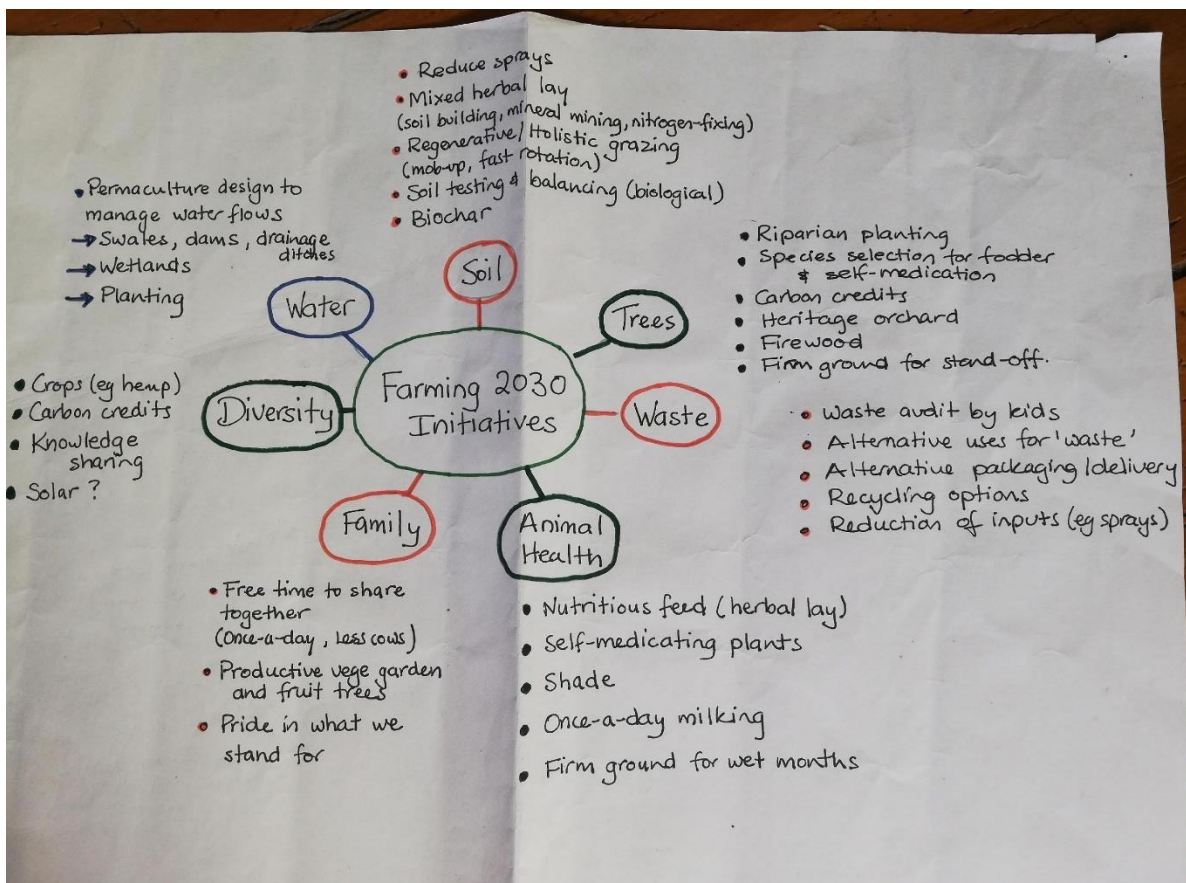 • Reduce sprays
• Mixed herbal lay
(soil building, mineral mining, nitrogen-fixing)
• Regenerative/Holistic grazing
(mob-up, fast rotation)
• Soil testing & balancing (biological)
• Biochar
Soil
• Permaculture design to
manage water flows
→ Swales, dams, drainage
ditches
→ Wetlands
→ Planting
Water
• Riparian planting
• Species selection for fodder
& self-medication
• Carbon credits
• Heritage orchard
• Firewood
• Firm ground for stand-off.
Trees
Farming 2030
Initiatives
• Crops (eg hemp)
• Carbon credits
• Knowledge
sharing
• Solar ?
Diversity
Waste
• Waste audit by kids
• Alternative uses for 'waste'
• Alternative packaging/delivery
• Recycling options
• Reduction of inputs (eg sprays)
Family
• Free time to share
together
(Once-a-day, Less cows)
• Productive vege garden
and fruit trees
• Pride in what we
stand for
Animal
Health
• Nutritious feed (herbal lay)
• Self-medicating plants
• Shade
• Once-a-day milking
• Firm ground for wet months